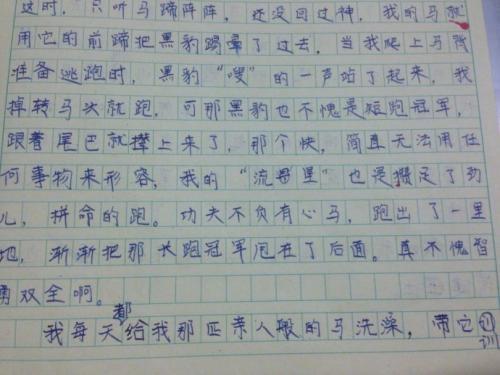 这时，只听马蹄阵阵，还没回过神，我的马就
用它的前蹄把黑豹踢晕了过去，当我爬上马背
准备逃跑时，黑豹“嗖”的一声站了起来，我
掉转马头就跑，可那黑豹也不愧是短跑冠军，
跟着尾巴就撵上来了，那个快，简直无法用任
何事物来形容，我的“流星”也是攒足了劲
儿，拼命的跑。功夫不负有心马，跑出了一里
地，渐渐把那长跑冠军甩在了后面。真不愧智
勇双全啊。
我每天都给我那匹亲人般的马洗澡，带它训